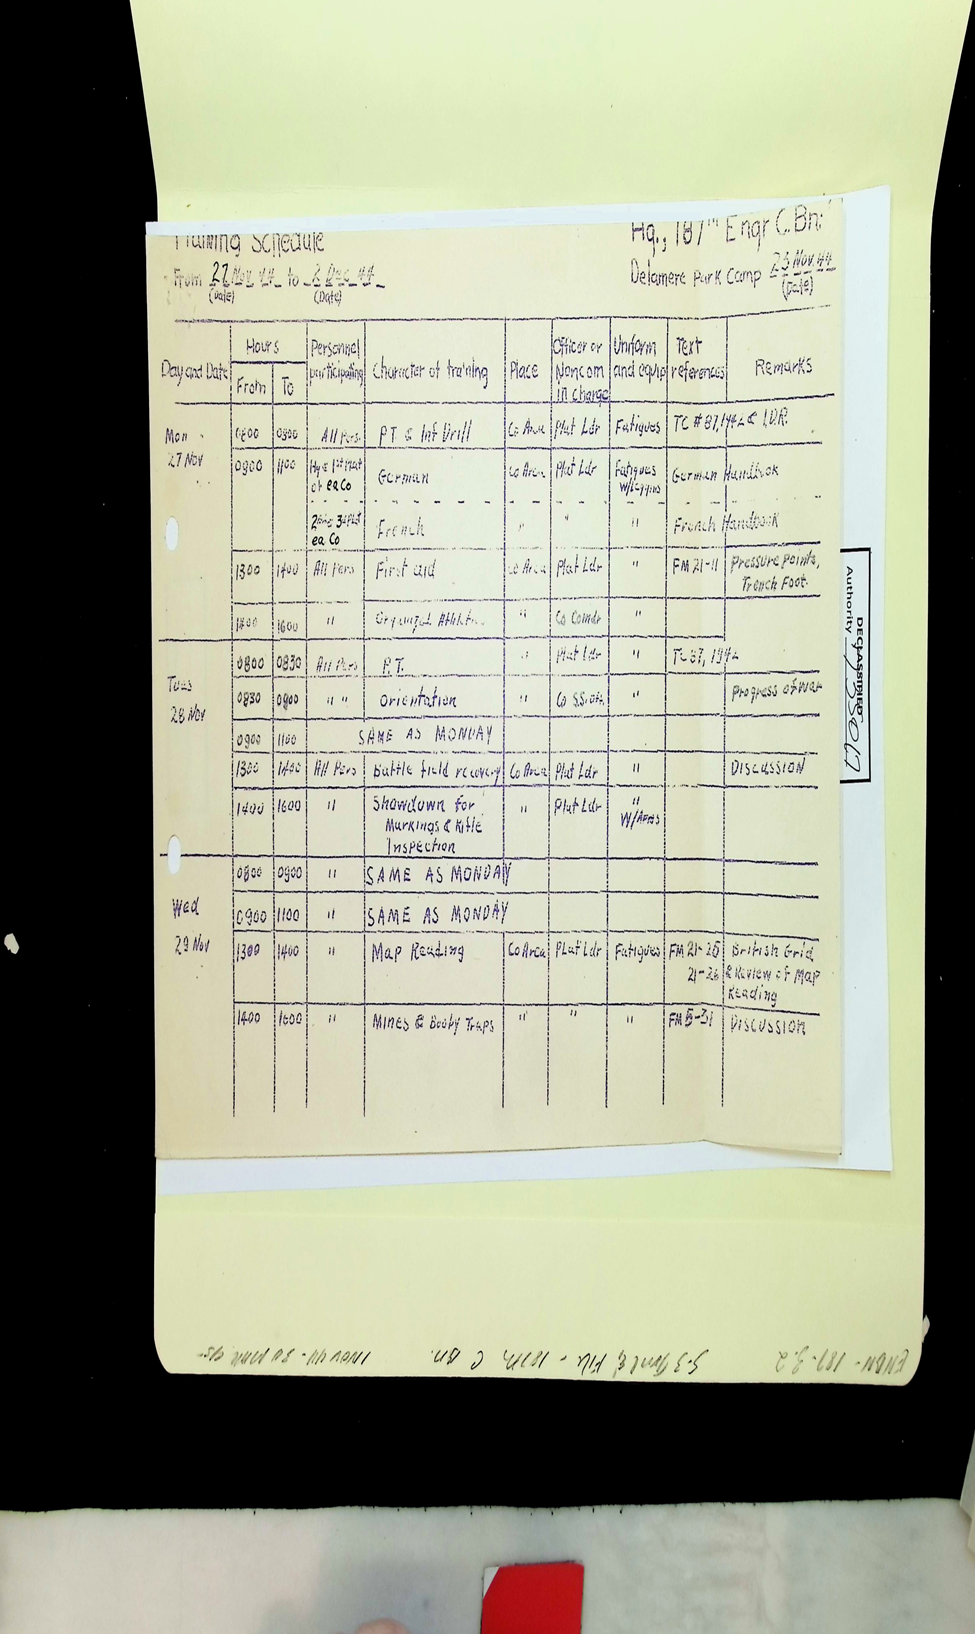 Training Schedule
Hq., 187th Engr C. Bn.
From 27 Nov 44 to 2 Dec 44
(Date) (Date)
Delamere Park Camp 23 Nov 44
(Date)
Day and Date
Hours
From To
Personnel participating
Character of training
Place
Officer or Noncom in charge
Uniform and equip
Text references
Remarks
Mon
27 Nov
0800 0900 All Pers. P.T. & Inf Drill Co Area Plat Ldr Fatigues TC #87, 1942 & I.D.R.
0900 1100 Hq & 1st Plat of ea Co German Co Area Plat Ldr Fatigues w/Leggins German Handbook
2nd & 3d Plat ea Co French " " " French Handbook
1300 1400 All Pers First aid Co Area Plat Ldr " FM 21-11 Pressure points, Trench Foot.
1400 1600 " Organized Athletics " Co Comdr "
Tues
28 Nov
0800 0830 All Pers P.T. " Plat Ldr " TC 87, 1942
0830 0900 " " Orientation " Co "  Progress of war
0900 1100 SAME AS MONDAY
1300 1400 All Pers Battle field recovery Co Area Plat Ldr " Discussion
1400 1600 " Showdown for Markings & Rifle Inspection " Plat Ldr " W/Arms
Wed
29 Nov
0800 0900 " SAME AS MONDAY
0900 1100 " SAME AS MONDAY
1300 1400 " Map Reading Co Area Plat Ldr Fatigues FM 21-25 21-26 British Grid & Review of Map Reading
1400 1600 " Mines & Booby Traps " " " FM 5-31 Discussion
DECLASSIFIED
Authority
ENBN-187-3.2
S-3 Jnl & File - 187th C Bn.
1 Nov 44 - 30 Mar 45